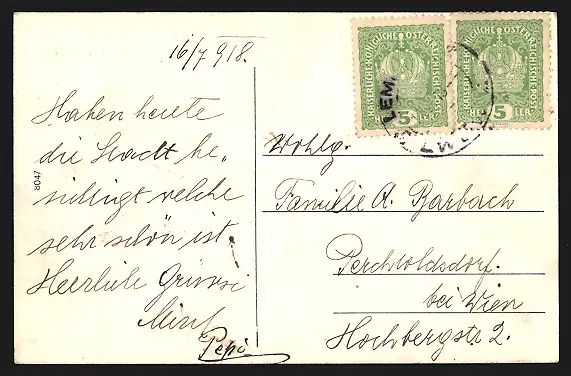 16/7 918.
Haben heute
die Stadt be„
sichtigt welche
sehr schön ist.
Herzliche Grüsse
Pepi
8047
Wohlg.
Familie A. Barbach
Perchtoldsdorf.
bei Wien
Hochbergstr 2.
KAISERLICHE KÖNIGLICHE ÖSTERREICHISCHE POST
5 HELLER
KAISERLICHE KÖNIGLICHE ÖSTERREICHISCHE POST
5 HELLER
LEM.